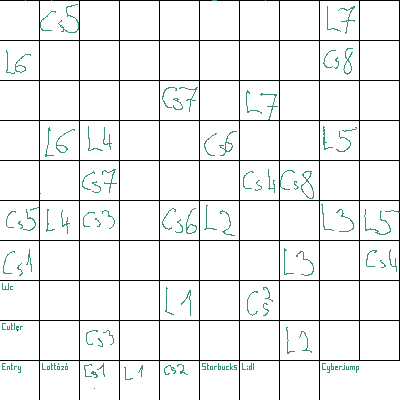 Cs5 L7
L6 Cs8
Cs7 L7
L6 L4 Cs6 L5
Cs7 Cs4 Cs8
Cs5 L4 Cs3 Cs6 L2 L3 L5
Cs1 L3 Cs4
Wc L1 Cs2
Cutler Cs3 L2
Entry Lottózó Cs1 L1 Cs2 Starbucks Lidl CyberJump